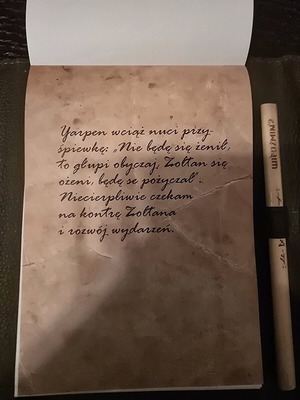 Yarpen wciąż nuci przy-
śpiewkę: „Nie będę się żenił,
to głupi obyczaj, Zoltan się
ożeni, będę se pożyczał”.
Niecierpliwie czekam
na kontrę Zoltana
i rozwój wydarzeń.
WIEDŹMIN?